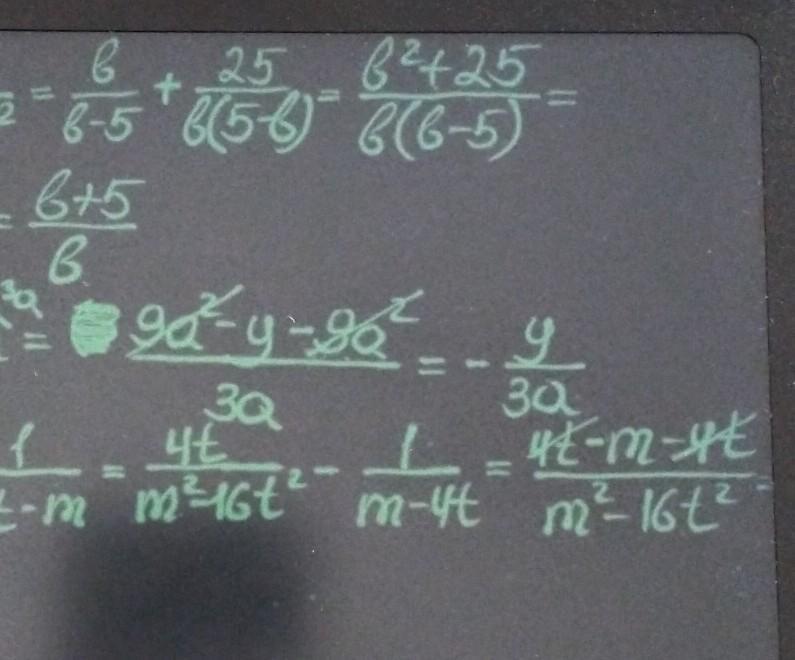 2 = в/(в-5) + 25/(в(5-в)) = (в²+25)/(в(в-5)) =
= (в+5)/в
3a
= (9a²-y-9a²)/(3a) = - y/(3a)
1/(t-m) = 4t/(m²-16t²) - 1/(m-4t) = (4t-m-4t)/(m²-16t²) =